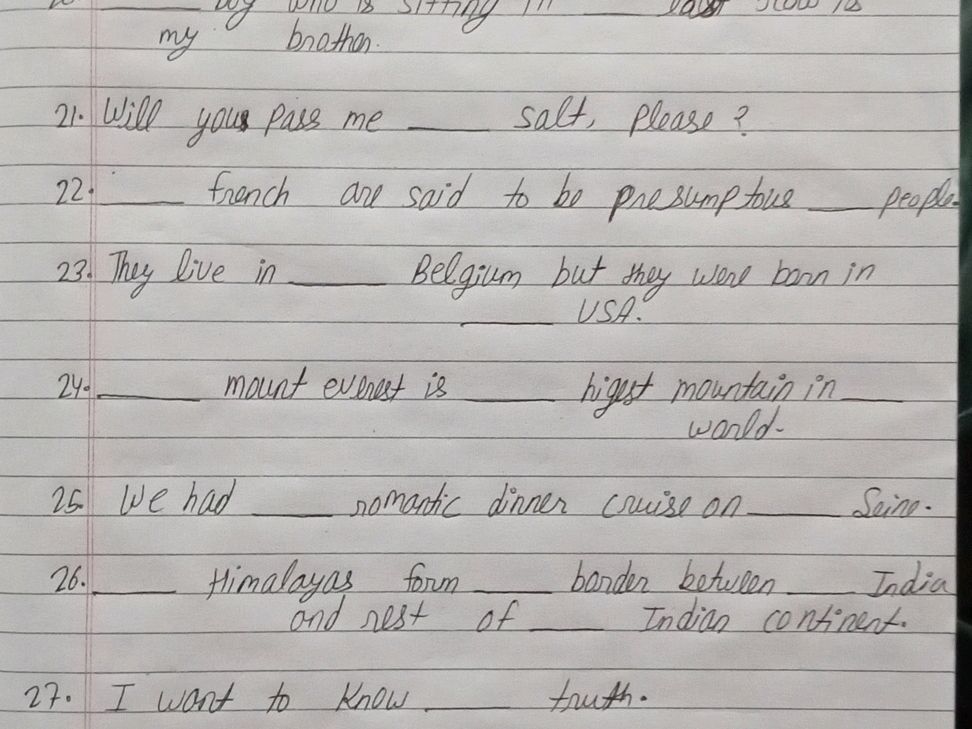 _____ who is sitting in _____ last row is
my brother.
21. Will your pass me _____ salt, please ?
22. _____ french are said to be presumptous _____ people.
23. They live in _____ Belgium but they were born in
_____ USA.
24. _____ mount everest is _____ higest mountain in _____
world.
25. We had _____ romantic dinner cruise on _____ Seine.
26. _____ Himalayas form _____ border between _____ India
and rest of _____ Indian continent.
27. I want to know _____ truth.